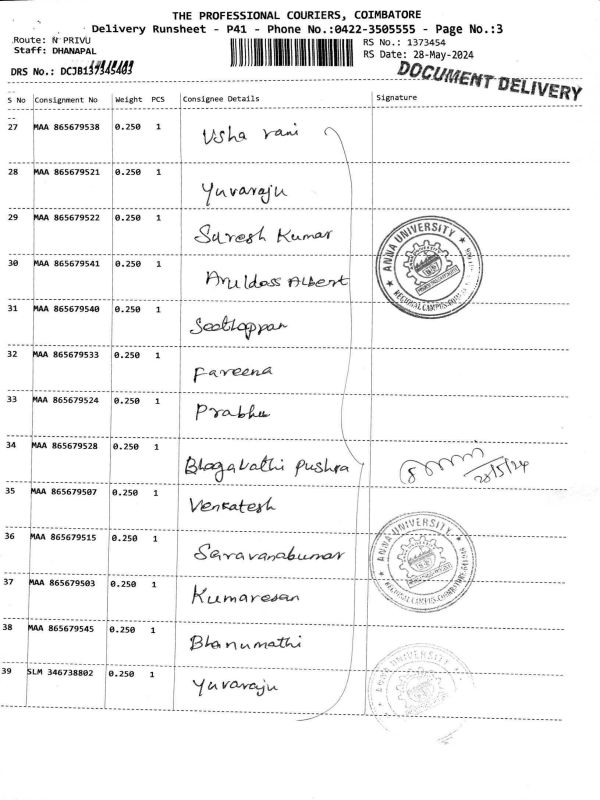 THE PROFESSIONAL COURIERS, COIMBATORE
Delivery Runsheet - P41 - Phone No.:0422-3505555 - Page No.:3
Route: N PRIVU
RS No.: 1373454
Staff: DHANAPAL
RS Date: 28-May-2024
DRS No.: DCJB137345403
DOCUMENT DELIVERY
S No Consignment No Weight PCS Consignee Details Signature
27 MAA 865679538 0.250 1 Usha rani
28 MAA 865679521 0.250 1 Yuvaraju
29 MAA 865679522 0.250 1 Suresh Kumar
ANNA UNIVERSITY
REGIONAL CAMPUS
30 MAA 865679541 0.250 1 Aruldoss Albert
31 MAA 865679540 0.250 1
32 MAA 865679533 0.250 1 Fareena
33 MAA 865679524 0.250 1 Prabhu
34 MAA 865679528 0.250 1 Bhagavathi Pushpa
28/5/24
35 MAA 865679507 0.250 1 Venkatesh
36 MAA 865679515 0.250 1 Saravanakumar
ANNA UNIVERSITY
REGIONAL CAMPUS, COIMBATORE
37 MAA 865679503 0.250 1 Kumaresan
38 MAA 865679545 0.250 1 Bhanumathi
39 SLM 346738802 0.250 1 Yuvaraju
UNIVERSITY